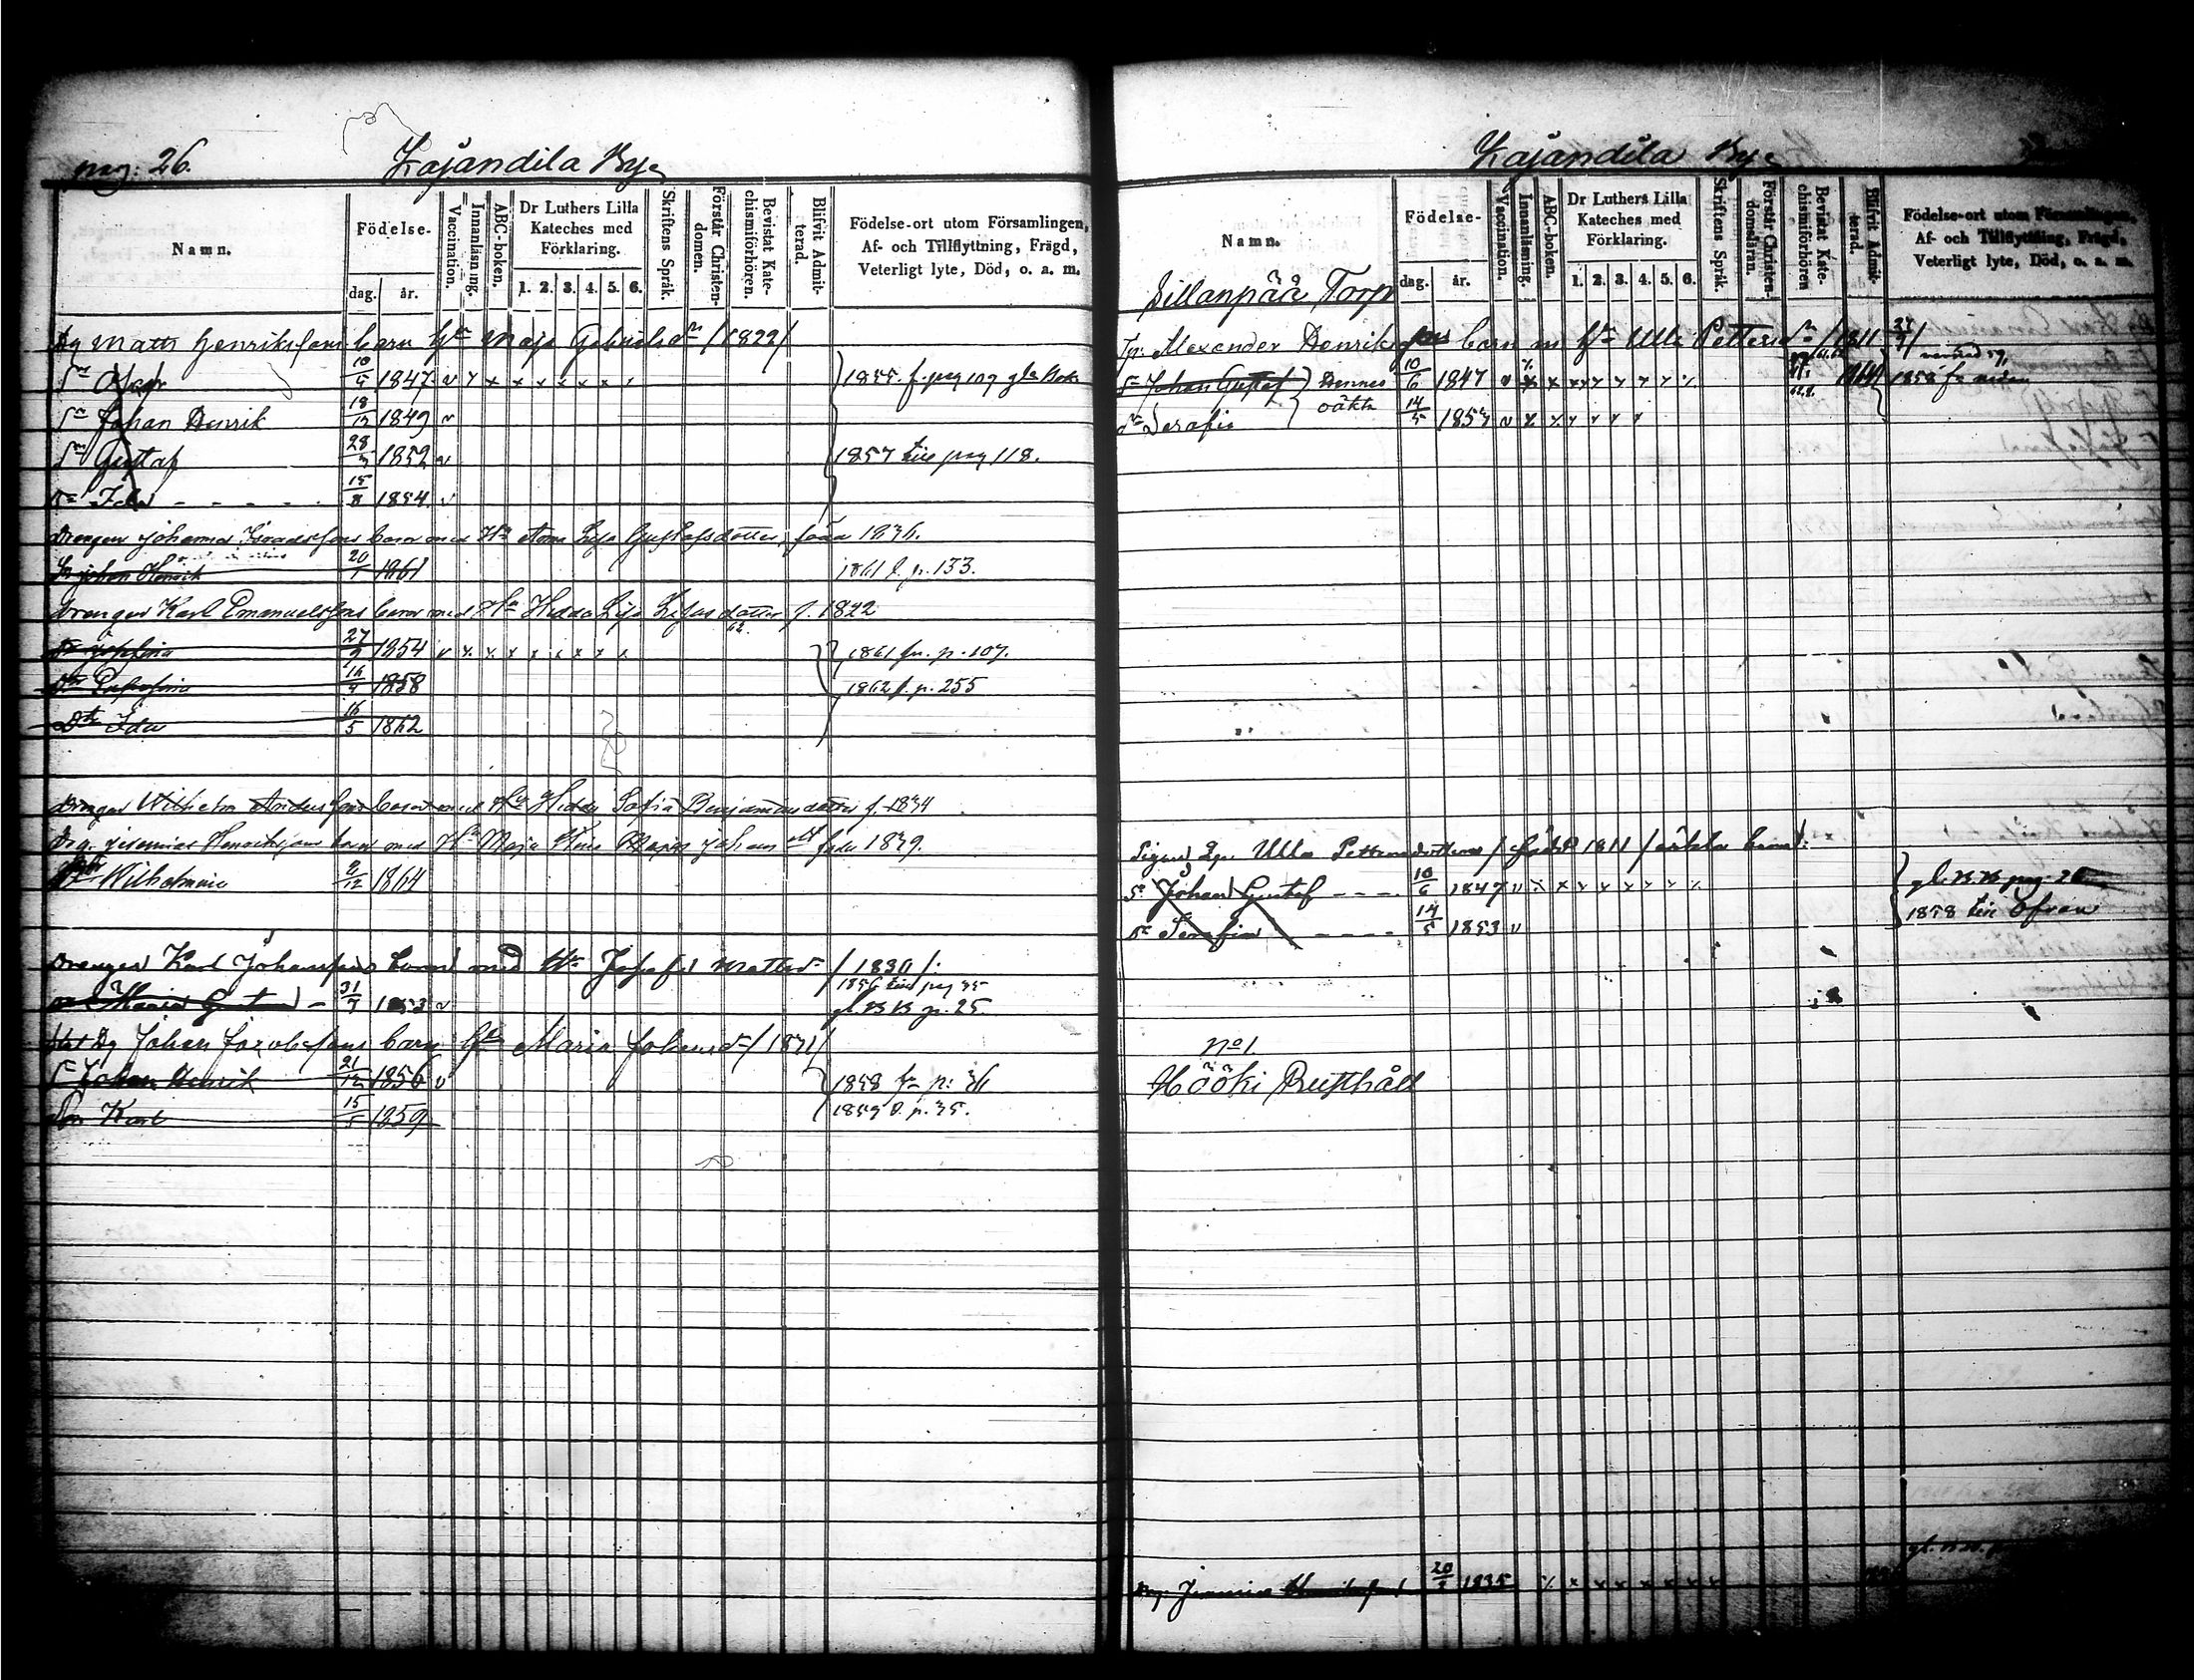 pag: 26. Kajandila By
Namn.
Födelse-
dag. år.
Vaccination.
Innanläsning.
ABC-boken.
Dr Luthers Lilla Kateches med Förklaring.
1. 2. 3. 4. 5. 6.
Skriftens Språk.
Förstår Christendomen.
Bevistat Katechismiförhören.
Blifvit Admitterad.
Födelse-ort utom Församlingen,
Af- och Tillflyttning, Frägd,
Veterligt lyte, Död, o. a. m.
Dg Matts Henrikssons barn Hu Maja Gabrielsdr /1822/
10/4 1847 v 1855. f. pag 109 gla Bok
Sn Johan Henrik 18/12 1849 v
Sn Gustaf 28/3 1852 v 1857 till pag 118.
15/8 1854 v
Drengen Johannes barn med Hu Anna Lisa Gustafsdotter, född 1836.
Sn Johan Henrik 20/1 1861 1861 f. p. 133.
Drengen Karl Emanuelssons barn med Hu Hedda Lisa dotter f. 1822
62.
Dr Josefina 27/9 1854 v x x x x x x x x 1861 fr. p. 107.
16/4 1858 1862 f. p. 255
Dtr Ida 16/5 1862
Drengen Wilhelm Anderssons barn med Hu Hedda Sofia Benjaminsdotter f. 1834
Drg. Jeremias Henrikssons barn med Hu Maja Stina född 1839.
Wilhelmina 2/12 1864
Drengen Karl Johanssons barn med Hu Josefa Mattsdr /1830/:
Maria Gustava - 31/7 1853 v 1856 till pag 35
gl. K B p. 25.
Dg Johan Jacobssons barn Hu Maria Johansdr /1831/
Sn Johan Henrik 21/12 1856 v 1858 fr p: 36
Son Karl 15/5 1859 1859 f. p. 35.
Kajandila By
Namn.
Sillanpää Torp
Födelse-
dag. år.
Vaccination.
Innanläsning.
ABC-boken.
Dr Luthers Lilla Kateches med Förklaring.
1. 2. 3. 4. 5. 6.
Skriftens Språk.
Förstår Christendomsläran.
Bevistat Katechismiförhören
Blifvit Admitterad.
Födelse-ort utom Församlingen,
Af- och Tillflyttning, Frägd,
Veterligt lyte, Död, o. a. m.
Tp. Alexander Henrikssons barn m Hu Ulla Pettersdr /1811 27/9/
Sn Johan Gustaf Hennes 10/6 1847 v x x x x x x x 1864 1858 fr nedan
Dr Serafia oäkta 14/5 1853 v x x x x x x
Pigan Ulla Pettersdotters /född 1811/ oäkta barn:
Sn Johan Gustaf - - - - 10/6 1847 v x x x x x x x gl. K B pag. 26
Dr Serafia - - - - 14/5 1853 v 1858 till ofvan
No 1.
Hööki Rusthåll
Drg. Jeremias Henriksson 20/3 1835 x x x x x x x x